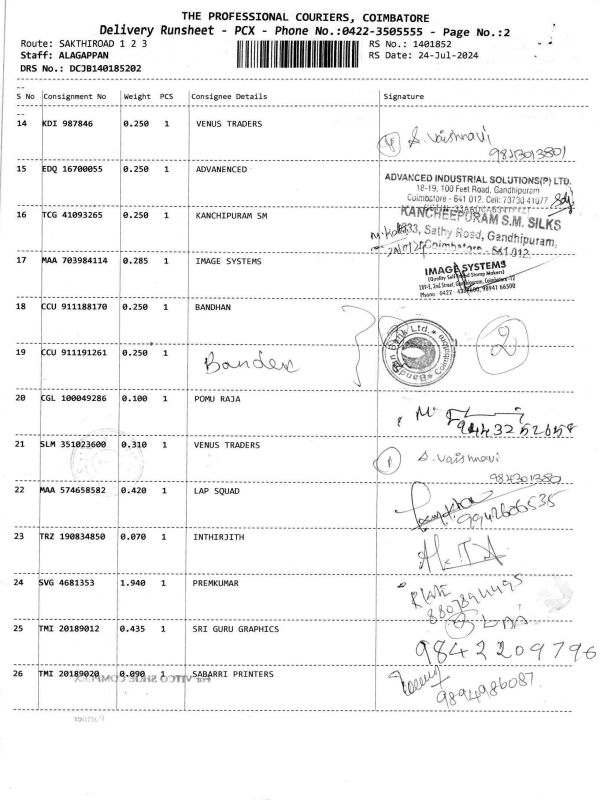 THE PROFESSIONAL COURIERS, COIMBATORE
Delivery Runsheet - PCX - Phone No.:0422-3505555 - Page No.:2
Route: SAKTHIROAD 1 2 3 RS No.: 1401852
Staff: ALAGAPPAN RS Date: 24-Jul-2024
DRS No.: DCJB140185202
S No Consignment No Weight PCS Consignee Details Signature
14 KDI 987846 0.250 1 VENUS TRADERS
S. Vaishnavi
15 EDQ 16700055 0.250 1 ADVANENCED
ADVANCED INDUSTRIAL SOLUTIONS(P) LTD.
18-19, 100 Feet Road, Gandhipuram
Coimbatore - 641 012. Cell: 73730 41077
16 TCG 41093265 0.250 1 KANCHIPURAM SM
KANCHEEPURAM S.M. SILKS
Sathy Road, Gandhipuram,
Coimbatore - 641 012
17 MAA 703984114 0.285 1 IMAGE SYSTEMS
IMAGE SYSTEMS
18 CCU 911188170 0.250 1 BANDHAN
19 CCU 911191261 0.250 1
Bandex
2
20 CGL 100049286 0.100 1 POMU RAJA
9443252658
21 SLM 351023600 0.310 1 VENUS TRADERS
S. Vaishnavi
22 MAA 574658582 0.420 1 LAP SQUAD
9942606535
23 TRZ 190834850 0.070 1 INTHIRJITH
24 SVG 4681353 1.940 1 PREMKUMAR
25 TMI 20189012 0.435 1 SRI GURU GRAPHICS
9842209796
26 TMI 20189020 0.090 1 SABARRI PRINTERS
9894986087